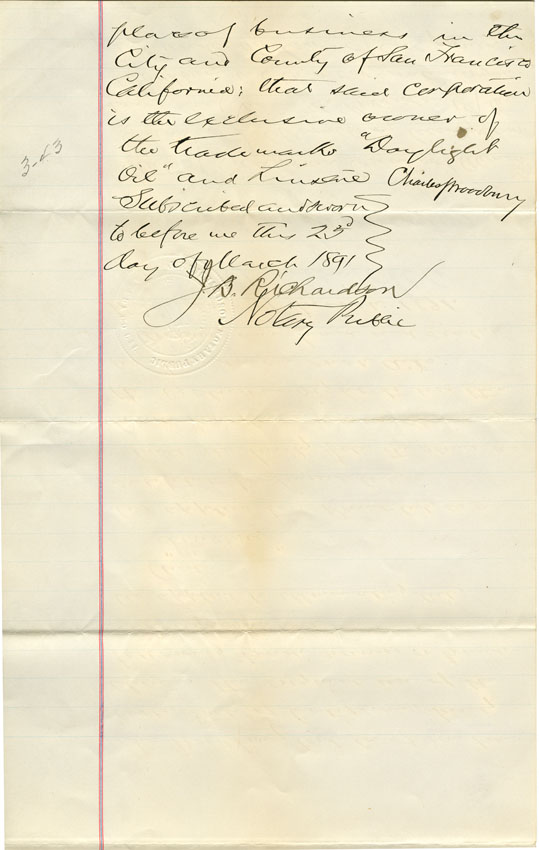 place of business in the
City and County of San Francisco
California; that said corporation
is the exclusive owner of
the trademarks "Daylight
Oil" and Linsene Charles J Woodbury
Subscribed and sworn
to before me this 23d
day of March 1891
J. B. Richardson
Notary Public